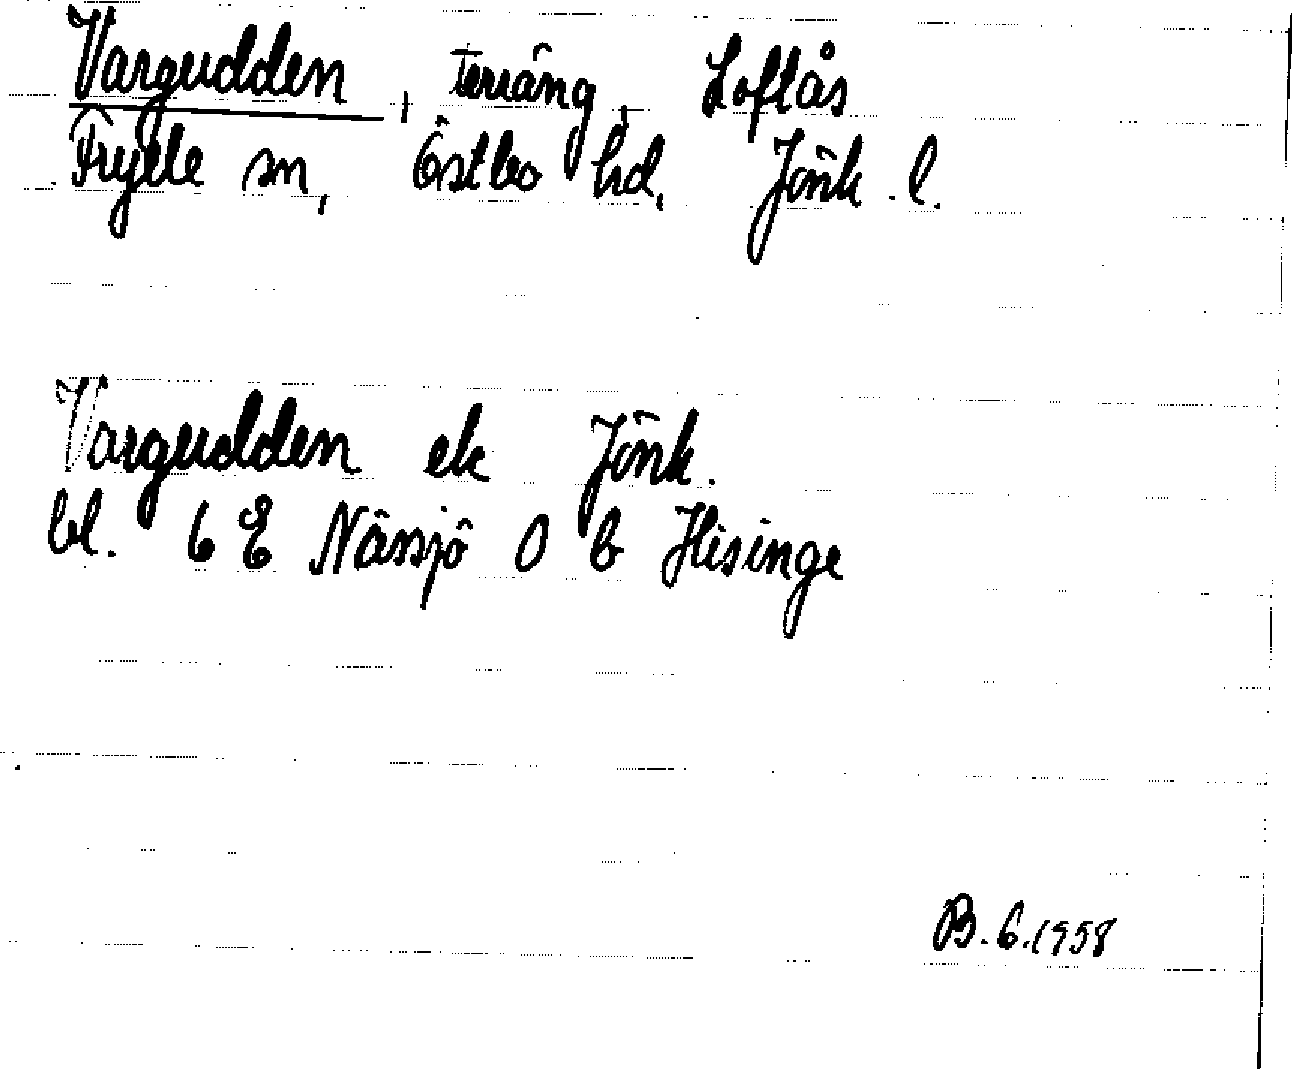 Vargudden, terräng, Loftås
Frylle sn, Östbo hd, Jönk. l.
Vargudden ek Jönk.
bl. 6 E Nässjö O b Hisinge
B.G. 1958